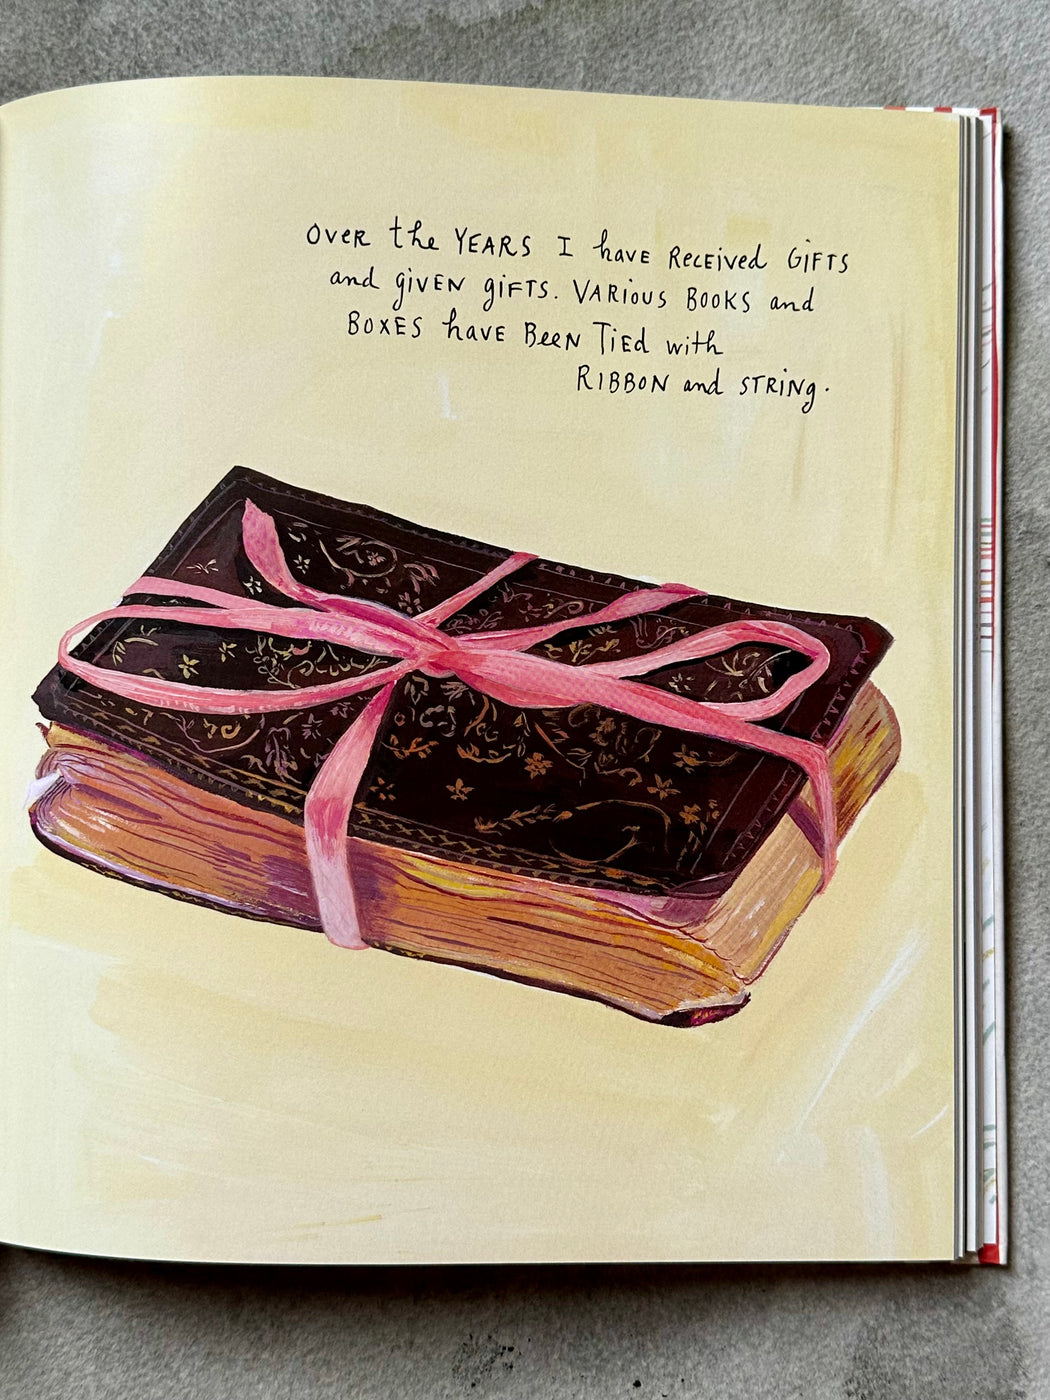 Over the YEARS I have Received GIFTS
and given gifts. VARious BOOKS and
BOXES have Been Tied with
RIBBON and STRiNg.